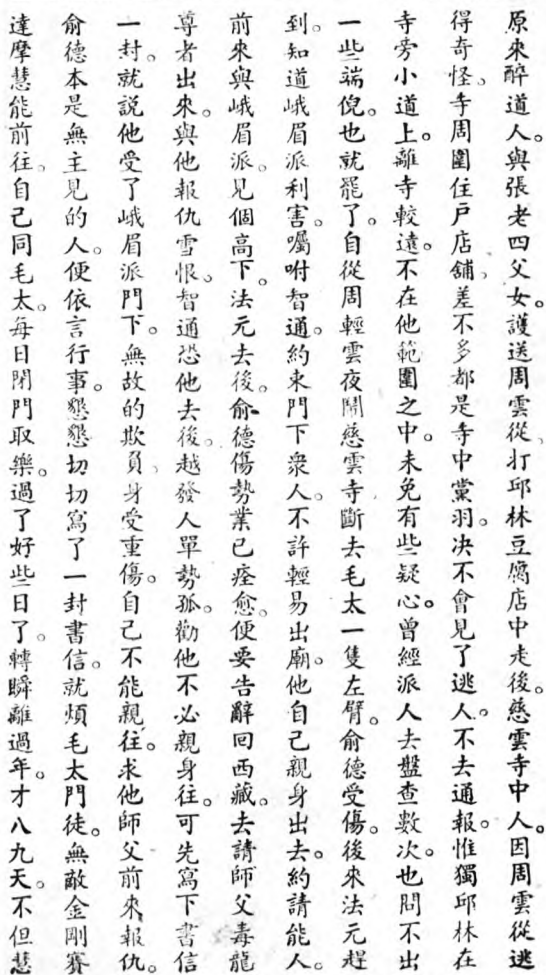 原來醉道人。與張老四父女。護送周雲從、打邱林豆腐店中走後。慈雲寺中人。因周雲從逃
得奇怪。寺周圍住戶店舖。差不多都是寺中黨羽。决不會見了逃人。不去通報。惟獨邱林在
寺旁小道上。離寺較遠。不在他範圍之中。未免有些疑心。曾經派人去盤查數次。也問不出
一些端倪。也就罷了。自從周輕雲夜鬧慈雲寺、斷去毛太一隻左臂。俞德受傷。後來法元趕
到。知道峨眉派利害。囑咐智通。約束門下衆人。不許輕易出廟。他自己親身出去。約請能人。
前來與峨眉派。見個高下。法元去後。俞德傷勢業已痊愈。便要告辭回西藏。去請師父毒龍
尊者出來。與他報仇雪恨。智通恐他去後。越發人單勢孤。勸他不必親身往。可先寫下書信
一封。就說他受了峨眉派門下。無故的欺負、身受重傷。自己不能親往。求他師父前來報仇。
俞德本是無主見的人。便依言行事。懇懇切切寫了一封書信。就煩毛太門徒。無敵金剛賽
達摩慧能前往。自己同毛太。每日閉門取樂。過了好些日了。轉瞬離過年。才八九天。不但慧